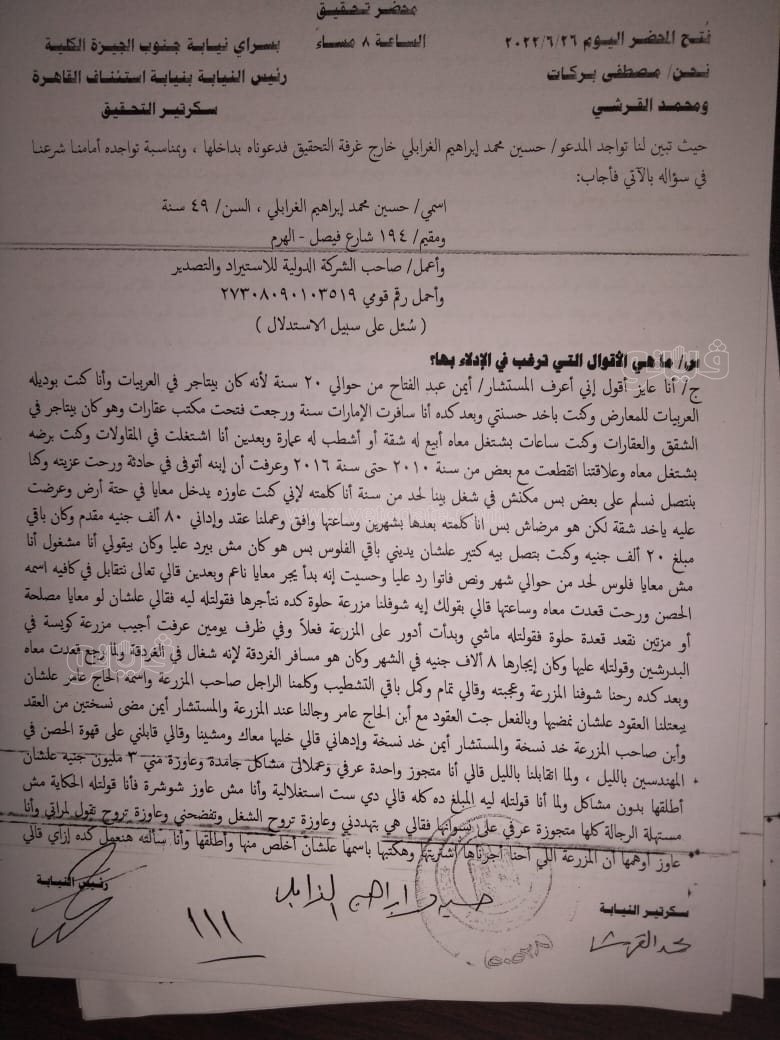 محضر تحقيق
فُتح المحضر اليوم ٢٠٢٢/٦/٢٦ الساعة ٨ مساءً بسراي نيابة جنوب الجيزة الكلية
نحن/ مصطفى بركات رئيس النيابة بنيابة استئناف القاهرة
ومحمد القرشي سكرتير التحقيق
حيث تبين لنا تواجد المدعو/ حسين محمد إبراهيم الغرابلي خارج غرفة التحقيق فدعوناه بداخلها ، وبمناسبة تواجده أمامنا شرعنا
في سؤاله بالآتي فأجاب:
اسمي/ حسين محمد إبراهيم الغرابلي ، السن/ ٤٩ سنة
ومقيم/ ١٩٤ شارع فيصل - الهرم
وأعمل/ صاحب الشركة الدولية للاستيراد والتصدير
وأحمل رقم قومي ٢٧٣٠٨٠٩٠١٠٣٥١٩
( سُئل على سبيل الاستدلال )
س/ ما هي الأقوال التي ترغب في الإدلاء بها؟
ج/ أنا عايز أقول إني أعرف المستشار/ أيمن عبد الفتاح من حوالي ٢٠ سنة لأنه كان بيتاجر في العربيات وأنا كنت بوديله
العربيات للمعارض وكنت باخد حسنتي وبعد كده أنا سافرت الإمارات سنة ورجعت فتحت مكتب عقارات وهو كان بيتاجر في
الشقق والعقارات وكنت ساعات بشتغل معاه أبيع له شقة أو أشطب له عمارة وبعدين أنا اشتغلت في المقاولات وكنت برضه
بشتغل معاه وعلاقتنا اتقطعت مع بعض من سنة ٢٠١٠ حتى سنة ٢٠١٦ وعرفت أن إبنه أتوفى في حادثة ورحت عزيته وكنا
بنتصل نسلم على بعض بس مكنش في شغل بينا لحد من سنة أنا كلمته لإني كنت عاوزه يدخل معايا في حتة أرض وعرضت
عليه ياخد شقة لكن هو مرضاش بس انا كلمته بعدها بشهرين وساعتها وافق وعملنا عقد وإداني ٨٠ ألف جنيه مقدم وكان باقي
مبلغ ٢٠ ألف جنيه وكنت بتصل بيه كتير علشان يديني باقي الفلوس بس هو كان مش بيرد عليا وكان بيقولي أنا مشغول أنا
مش معايا فلوس لحد من حوالي شهر ونص فاتوا رد عليا وحسيت إنه بدأ يجر معايا ناعم وبعدين قالي تعالى نتقابل في كافيه اسمه
الحصن ورحت قعدت معاه وساعتها قالي بقولك إيه شوفلنا مزرعة حلوة كده نتأجرها فقولتله ليه فقالي علشان لو معايا مصلحة
أو مزتين نقعد قعدة حلوة فقولتله ماشي وبدأت أدور على المزرعة فعلاً وفي ظرف يومين عرفت أجيب مزرعة كويسة في
البدرشين وقولتله عليها وكان إيجارها ٨ ألاف جنيه في الشهر وكان هو مسافر الغردقة لإنه شغال في الغردقة ولما رجع قعدت معاه
وبعد كده رحنا شوفنا المزرعة وعجبته وقالي تمام وكمل باقي التشطيب وكلمنا الراجل صاحب المزرعة واسمه الحاج عامر علشان
يبعتلنا العقود علشان نمضيها وبالفعل جت العقود مع أبن الحاج عامر وجالنا عند المزرعة والمستشار أيمن مضى نسختين من العقد
وأبن صاحب المزرعة خد نسخة والمستشار أيمن خد نسخة وإدهاني قالي خليها معاك ومشينا وقالي قابلني على قهوة الحصن في
المهندسين بالليل ، ولما اتقابلنا بالليل قالي أنا متجوز واحدة عرفي وعملالى مشاكل جامدة وعاوزة مني ٣ مليون جنيه علشان
أطلقها بدون مشاكل ولما أنا قولتله ليه المبلغ ده كله قالي دي ست استغلالية وأنا مش عاوز شوشرة فأنا قولتله الحكاية مش
مستهلة الرجالة كلها متجوزة عرفي على نسوانها فقالي هي بتهددني وعاوزة تروح الشغل وتفضحني وعاوزة تروح تقول لمراتي وأنا
عاوز أوهمها أن المزرعة اللي احنا اجرناها اشتريتها وهكتبها باسمها علشان أخلص منها وأطلقها وأنا سألته هنعمل كده إزاي قالي
سكرتير النيابة رئيس النيابة
محمد القرشي
١١١